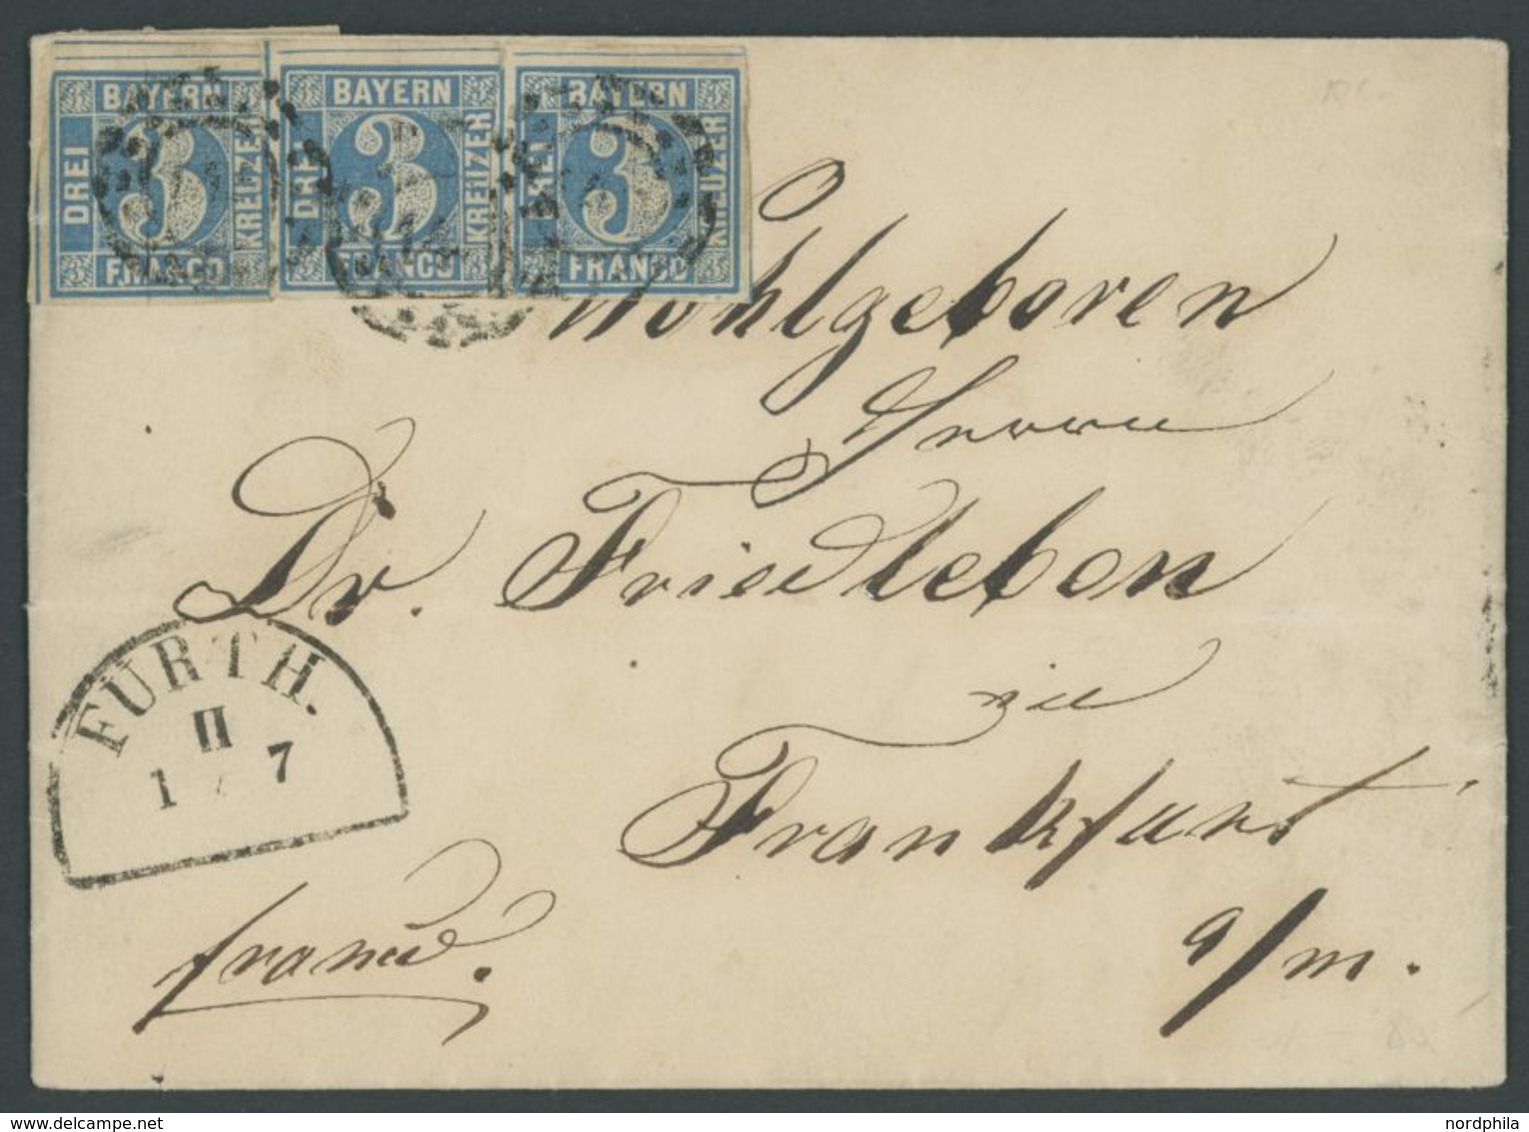 BAYERN BAYERN BAYERN
DREI 3 KREUZER DREI 3 KREUZER DREI 3 KREUZER
FRANCO FRANCO FRANCO
Wohlgeboren
Herrn
Dr. Friedleben
zu
Frankfurt
a/m.
FÜRTH.
II
1 / 7
franco.
nordphila
www.delcampe.net